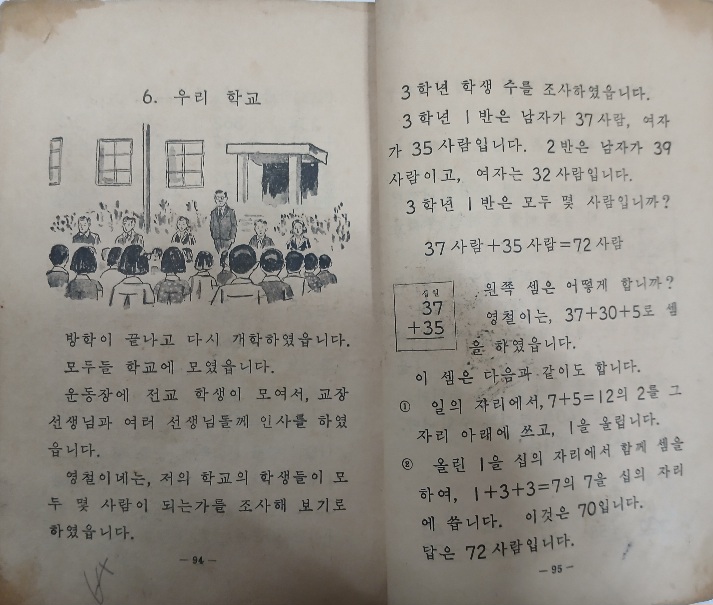 6. 우리 학교
방학이 끝나고 다시 개학하였읍니다.
모두들 학교에 모였읍니다.
운동장에 전교 학생이 모여서, 교장
선생님과 여러 선생님들께 인사를 하였
읍니다.
영철이네는, 저의 학교의 학생들이 모
두 몇 사람이 되는가를 조사해 보기로
하였읍니다.
- 94 -
3학년 학생 수를 조사하였읍니다.
3학년 1반은 남자가 37사람, 여자
가 35사람입니다. 2반은 남자가 39
사람이고, 여자는 32사람입니다.
3학년 1반은 모두 몇 사람입니까?
37사람+35사람=72사람
십 일
37
+35
왼쪽 셈은 어떻게 합니까?
영철이는, 37+30+5로 셈
을 하였읍니다.
이 셈은 다음과 같이도 합니다.
① 일의 자리에서, 7+5=12의 2를 그
자리 아래에 쓰고, 1을 올립니다.
② 올린 1을 십의 자리에서 함께 셈을
하여, 1+3+3=7의 7을 십의 자리
에 씁니다. 이것은 70입니다.
답은 72사람입니다.
- 95 -